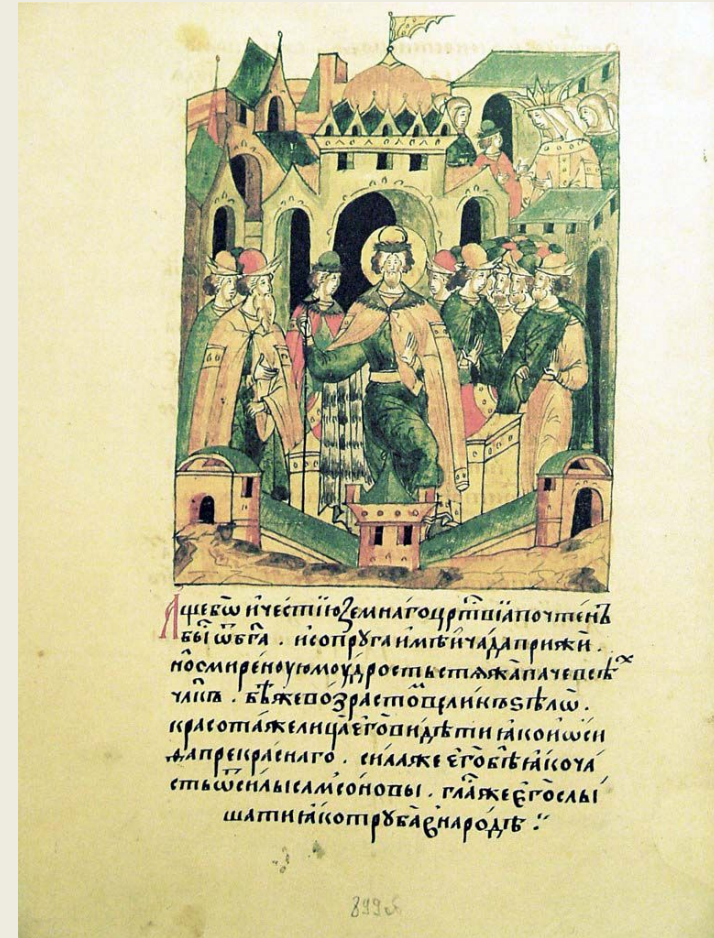 Аще бѡ и честїю земнаго црⷭ҇твїа почтенъ
бы́ ѿ б҃га . и сопруга имѣ́ и чада прижи́ .
но смиреноую моудрость стѧжа́ паче всѣⷯ
чл҃къ . бѣ́ же во́зрастоⷨ великъ ѕѣлѡ .
красота́ же лица̀ е҆го̀ ви́дѣти ꙗ҆́ко и҆ѡ҆си
фа прекраснаго . сила же е҆гѡ̀ бѣ́ ꙗ҆́ко ча́
сть ѿ силы самсоновы . гла́ же е҆гѡ̀ слы́
шати ꙗ҆́ко трѹба̀ в народѣ ⁘
899